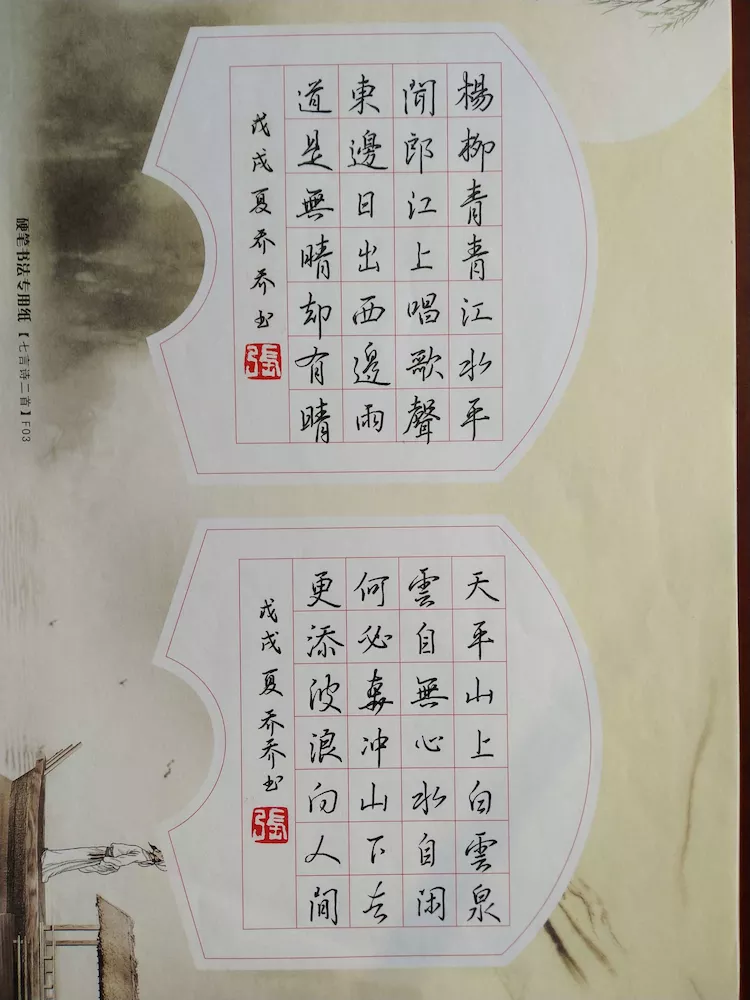 楊柳青青江水平
聞郎江上唱歌聲
東邊日出西邊雨
道是無晴却有晴
戊戌夏乔乔书
張
天平山上白雲泉
雲自無心水自閑
何必奔冲山下去
更添波浪向人間
戊戌夏乔乔书
張
硬笔书法专用纸【七言诗二首】F03